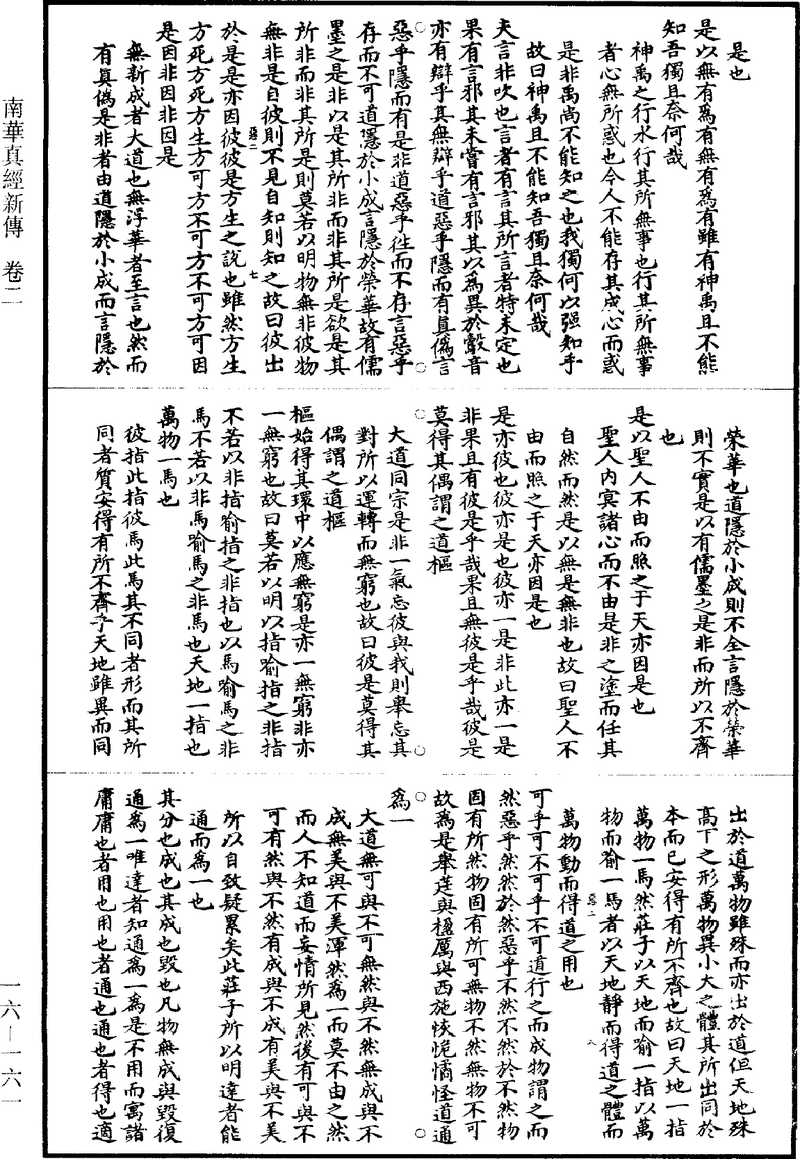 是也
是以無有爲有無有爲有雖有神禹且不能
知吾獨且奈何哉
神禹之行水行其所無事也行其所無事
者心無所惑也今人不能存其成心而惑
是非禹尚不能知之也我獨何以强知乎
故曰神禹且不能知吾獨且奈何哉
夫言非吹也言者有言其所言者特未定也
果有言邪其未嘗有言邪其以爲異於鷇音
亦有辯乎其無辯乎道惡乎隱而有真僞言
惡乎隱而有是非道惡乎往而不存言惡乎
存而不可道隱於小成言隱於榮華故有儒
墨之是非以是其所非而非其所是欲是其
所非而非其所是則莫若以明物無非彼物
無非是自彼則不見自知則知之故曰彼出
於是是亦因彼彼是方生之說也雖然方生
方死方死方生方可方不可方不可方可因
是因非因非因是
無新成者大道也無浮華者至言也然而
有真僞是非者由道隱於小成而言隱於
榮華也道隱於小成則不全言隱於榮華
則不實是以有儒墨之是非而所以不齊
也
是以聖人不由而照之于天亦因是也
聖人內冥諸心而不由是非之塗而任其
自然而然是以無是無非也故曰聖人不
由而照之于天亦因是也
是亦彼也彼亦是也彼亦一是非此亦一是
非果且有彼是乎哉果且無彼是乎哉彼是
莫得其偶謂之道樞
大道同宗是非一氣忘彼與我則舉忘其
對所以運轉而無窮也故曰彼是莫得其
偶謂之道樞
樞始得其環中以應無窮是亦一無窮非亦
一無窮也故曰莫若以明以指喻指之非指
不若以非指喻指之非指也以馬喻馬之非
馬不若以非馬喻馬之非馬也天地一指也
萬物一馬也
彼指此指彼馬此馬其不同者形而其所
同者質安得有所不齊乎天地雖異而同
出於道萬物雖殊而亦出於道但天地殊
高下之形萬物異小大之體其所出同於
本而已安得有所不齊也故曰天地一指
萬物一馬然莊子以天地而喻一指以萬
物而喻一馬者以天地靜而得道之體而
萬物動而得道之用也
可乎可不可乎不可道行之而成物謂之而
然惡乎然然於然惡乎不然不然於不然物
固有所然物固有所可無物不然無物不可
故爲是舉莛與楹厲與西施恢恑憰怪道通
爲一
大道無可與不可無然與不然無成與不
成無美與不美渾然爲一而莫不由之然
而人不知道而妄情所見然後有可與不
可有然與不然有成與不成有美與不美
所以自致疑累矣此莊子所以明達者能
通而爲一也
其分也成也其成也毀也凡物無成與毀復
通爲一唯達者知通爲一爲是不用而寓諸
庸庸也者用也用也者通也通也者得也適
南華真經新傳 卷二
一六—一六一